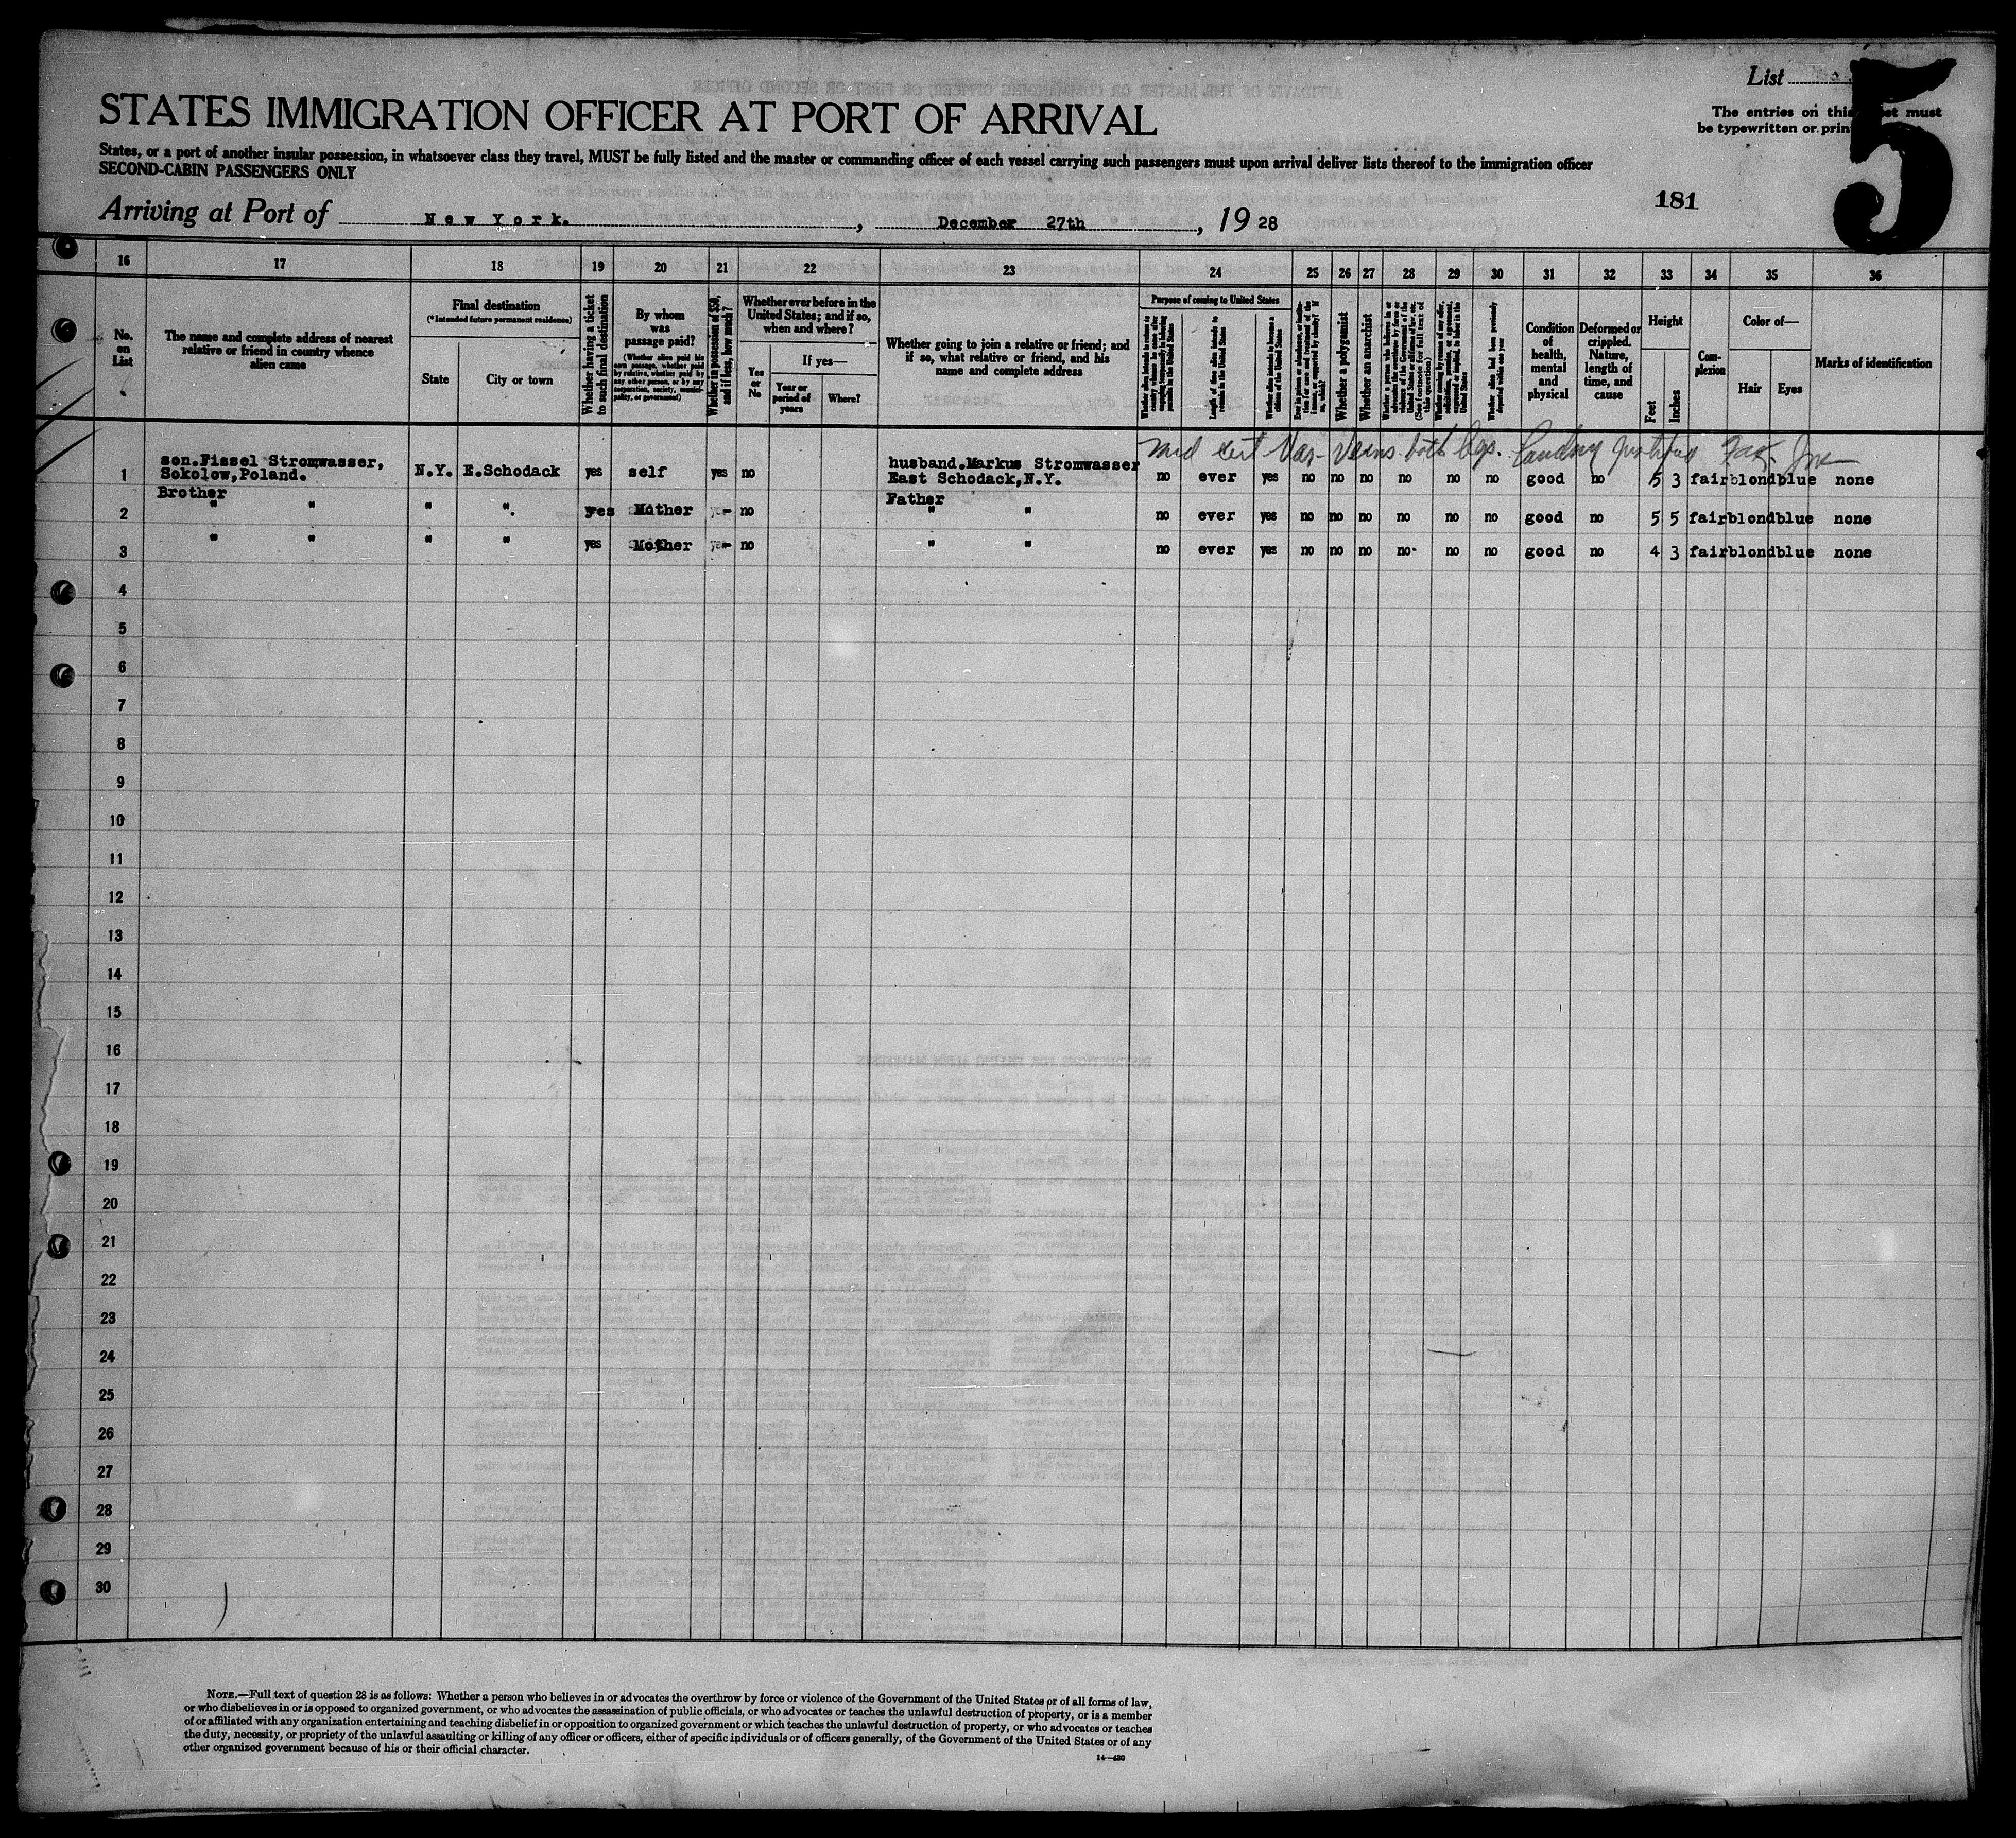 List
5
The entries on this must
be typewritten or
STATES IMMIGRATION OFFICER AT PORT OF ARRIVAL
States, or a port of another insular possession, in whatsoever class they travel, MUST be fully listed and the master or commanding officer of each vessel carrying such passengers must upon arrival deliver lists thereof to the immigration officer
SECOND-CABIN PASSENGERS ONLY
181
Arriving at Port of New York. , December 27th , 19 28
16 17 18 19 20 21 22 23 24 25 26 27 28 29 30 31 32 33 34 35 36
No. on List
The name and complete address of nearest relative or friend in country whence alien came
Final destination
(*Intended future permanent residence)
State
City or town
Whether having a ticket to such final destination
By whom was passage paid?
(Whether alien paid his own passage, whether paid by relative, whether paid by any other person, or by any corporation, society, municipality, or government)
Whether in possession of $50, and if less, how much?
Whether ever before in the United States; and if so, when and where?
Yes or No
If yes—
Year or period of years
Where?
Whether going to join a relative or friend; and if so, what relative or friend, and his name and complete address
Purpose of coming to United States
Length of time alien intends to remain in the United States
Whether alien intends to become a citizen of the United States
Whether a polygamist
Whether an anarchist
Whether alien had been previously deported within one year
Condition of health, mental and physical
Deformed or crippled. Nature, length of time, and cause
Height
Feet
Inches
Complexion
Color of—
Hair
Eyes
Marks of identification
med cert Var- Veins both legs.
son.Fissel Stromwasser, husband.Markus Stromwasser
1 Sokolow,Poland. N.Y. E.Schodack yes self yes no East Schodack,N.Y. no ever yes no no no no no no good no 5 3 fair blond blue none
Brother Father
2 " " " ". yes Mother no " " no ever yes no no no no no no good no 5 5 fair blond blue none
3 " " " " yes Mother no " " no ever yes no no no no no no good no 4 3 fair blond blue none
4
5
6
7
8
9
10
11
12
13
14
15
16
17
18
19
20
21
22
23
24
25
26
27
28
29
30
NOTE.—Full text of question 28 is as follows: Whether a person who believes in or advocates the overthrow by force or violence of the Government of the United States or of all forms of law,
or who disbelieves in or is opposed to organized government, or who advocates the assassination of public officials, or who advocates or teaches the unlawful destruction of property, or is a member
of or affiliated with any organization entertaining and teaching disbelief in or opposition to organized government or which teaches the unlawful destruction of property, or who advocates or teaches
the duty, necessity, or propriety of the unlawful assaulting or killing of any officer or officers, either of specific individuals or of officers generally, of the Government of the United States or of any
other organized government because of his or their official character.
14—430